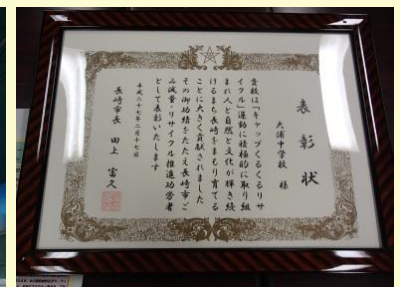 表彰状
大浦中学校 様
貴校は「キャップくるくるリサ
イクル」運動に積極的に取り組
まれ人と自然と文化が輝き続
けるまち長崎をまもり育てる
ことに大きく貢献されました
その御功績をたたえ長崎市ご
み減量・リサイクル推進功労者
として表彰いたします
平成二十七年二月十七日
長崎市長 田上 富久